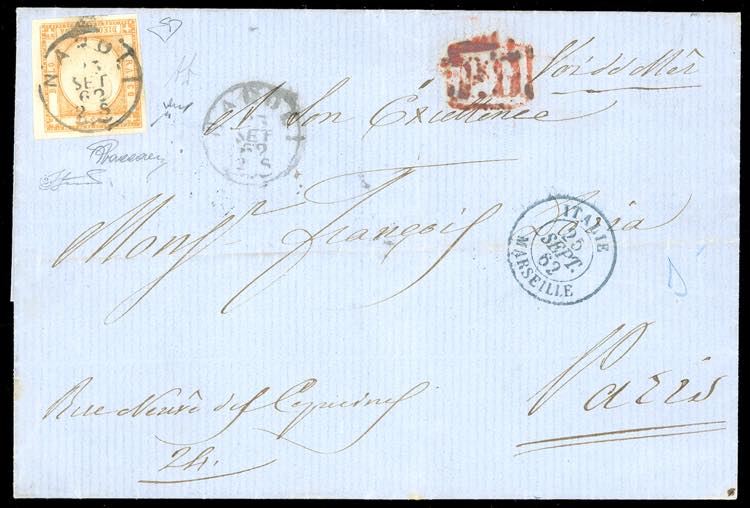 NAPOLI
SET
62
2 S
DIECI
NAPOLI
SET
62
2 S
P.D.
Voie de Mer
A Son Excellence
Monsr François
ITALIE
25
SEPT.
62
MARSEILLE
Paris
Rue Neuve des Capucines
24.